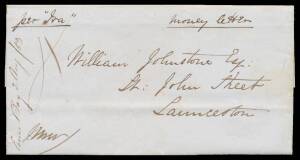 per "Iva"
Money letter
William Johnstone Esq:
St: John Street
Launceston